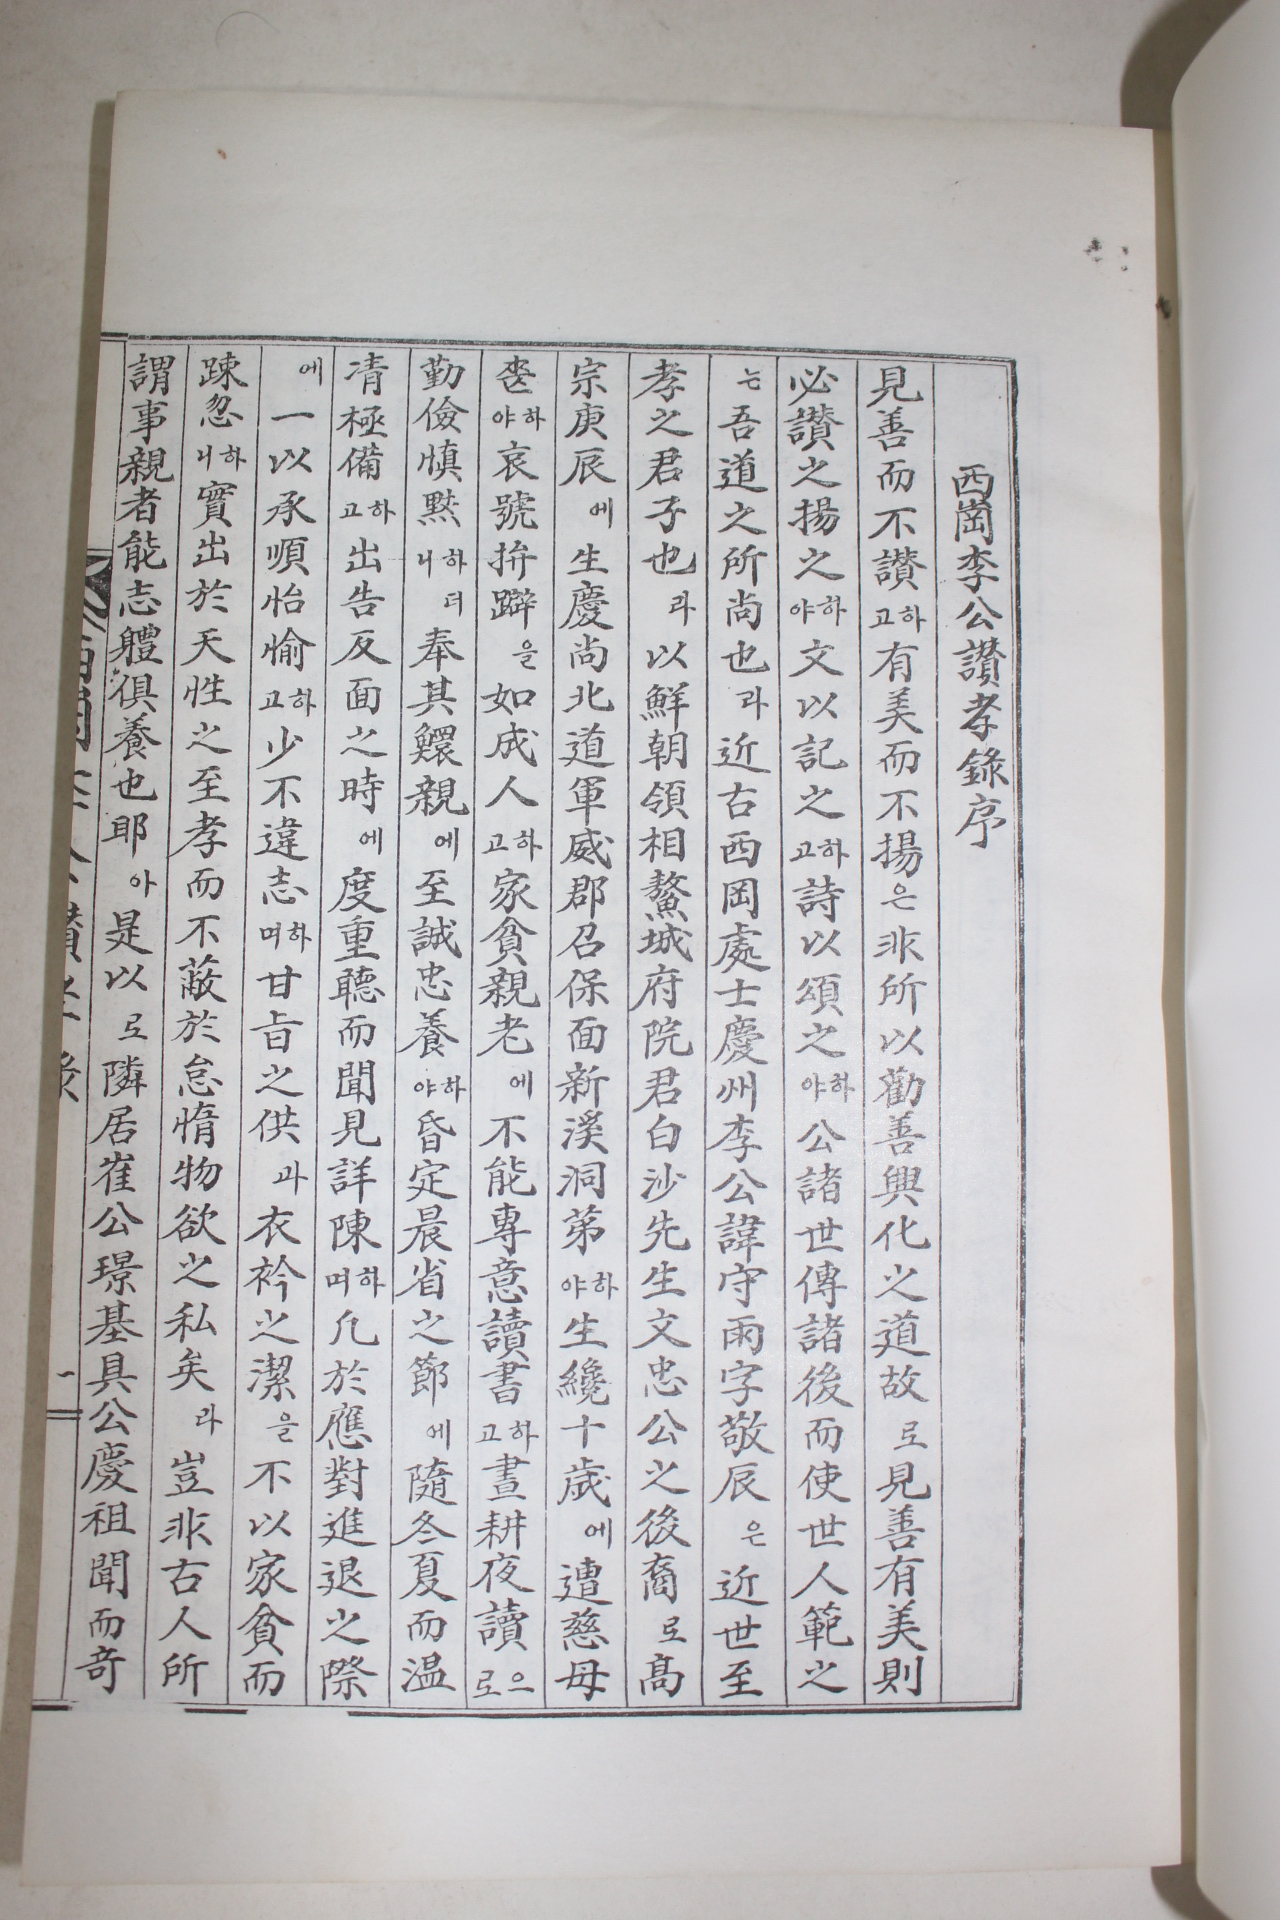 西崗李公讃孝錄序
見善而不讃하고有美而不揚은非所以勸善興化之道故로見善有美則
必讃之揚之하야文以記之하고詩以頌之하야公諸世傳諸後而使世人範之
는吾道之所尚也라近古西岡處士慶州李公諱守雨字敬辰은近世至
孝之君子也라以鮮朝領相鰲城府院君白沙先生文忠公之後裔로高
宗庚辰에生慶尚北道軍威郡召保面新溪洞第하야生纔十歲에遭慈母
喪하야哀號拚擗을如成人하고家貧親老에不能專意讀書하고晝耕夜讀으로
勤儉愼黙하더니奉其鰥親에至誠忠養하야昏定晨省之節에隨冬夏而温
凊極備하고出告反面之時에度重聽而聞見詳陳하며凡於應對進退之際
에一以承順怡愉하고少不違志하며甘旨之供과衣衿之潔을不以家貧而
踈忽하니實出於天性之至孝而不蔽於怠惰物欲之私矣라豈非古人所
謂事親者能志軆俱養也耶아是以로隣居崔公璟基具公慶祖聞而奇
西岡李公讃孝錄
一